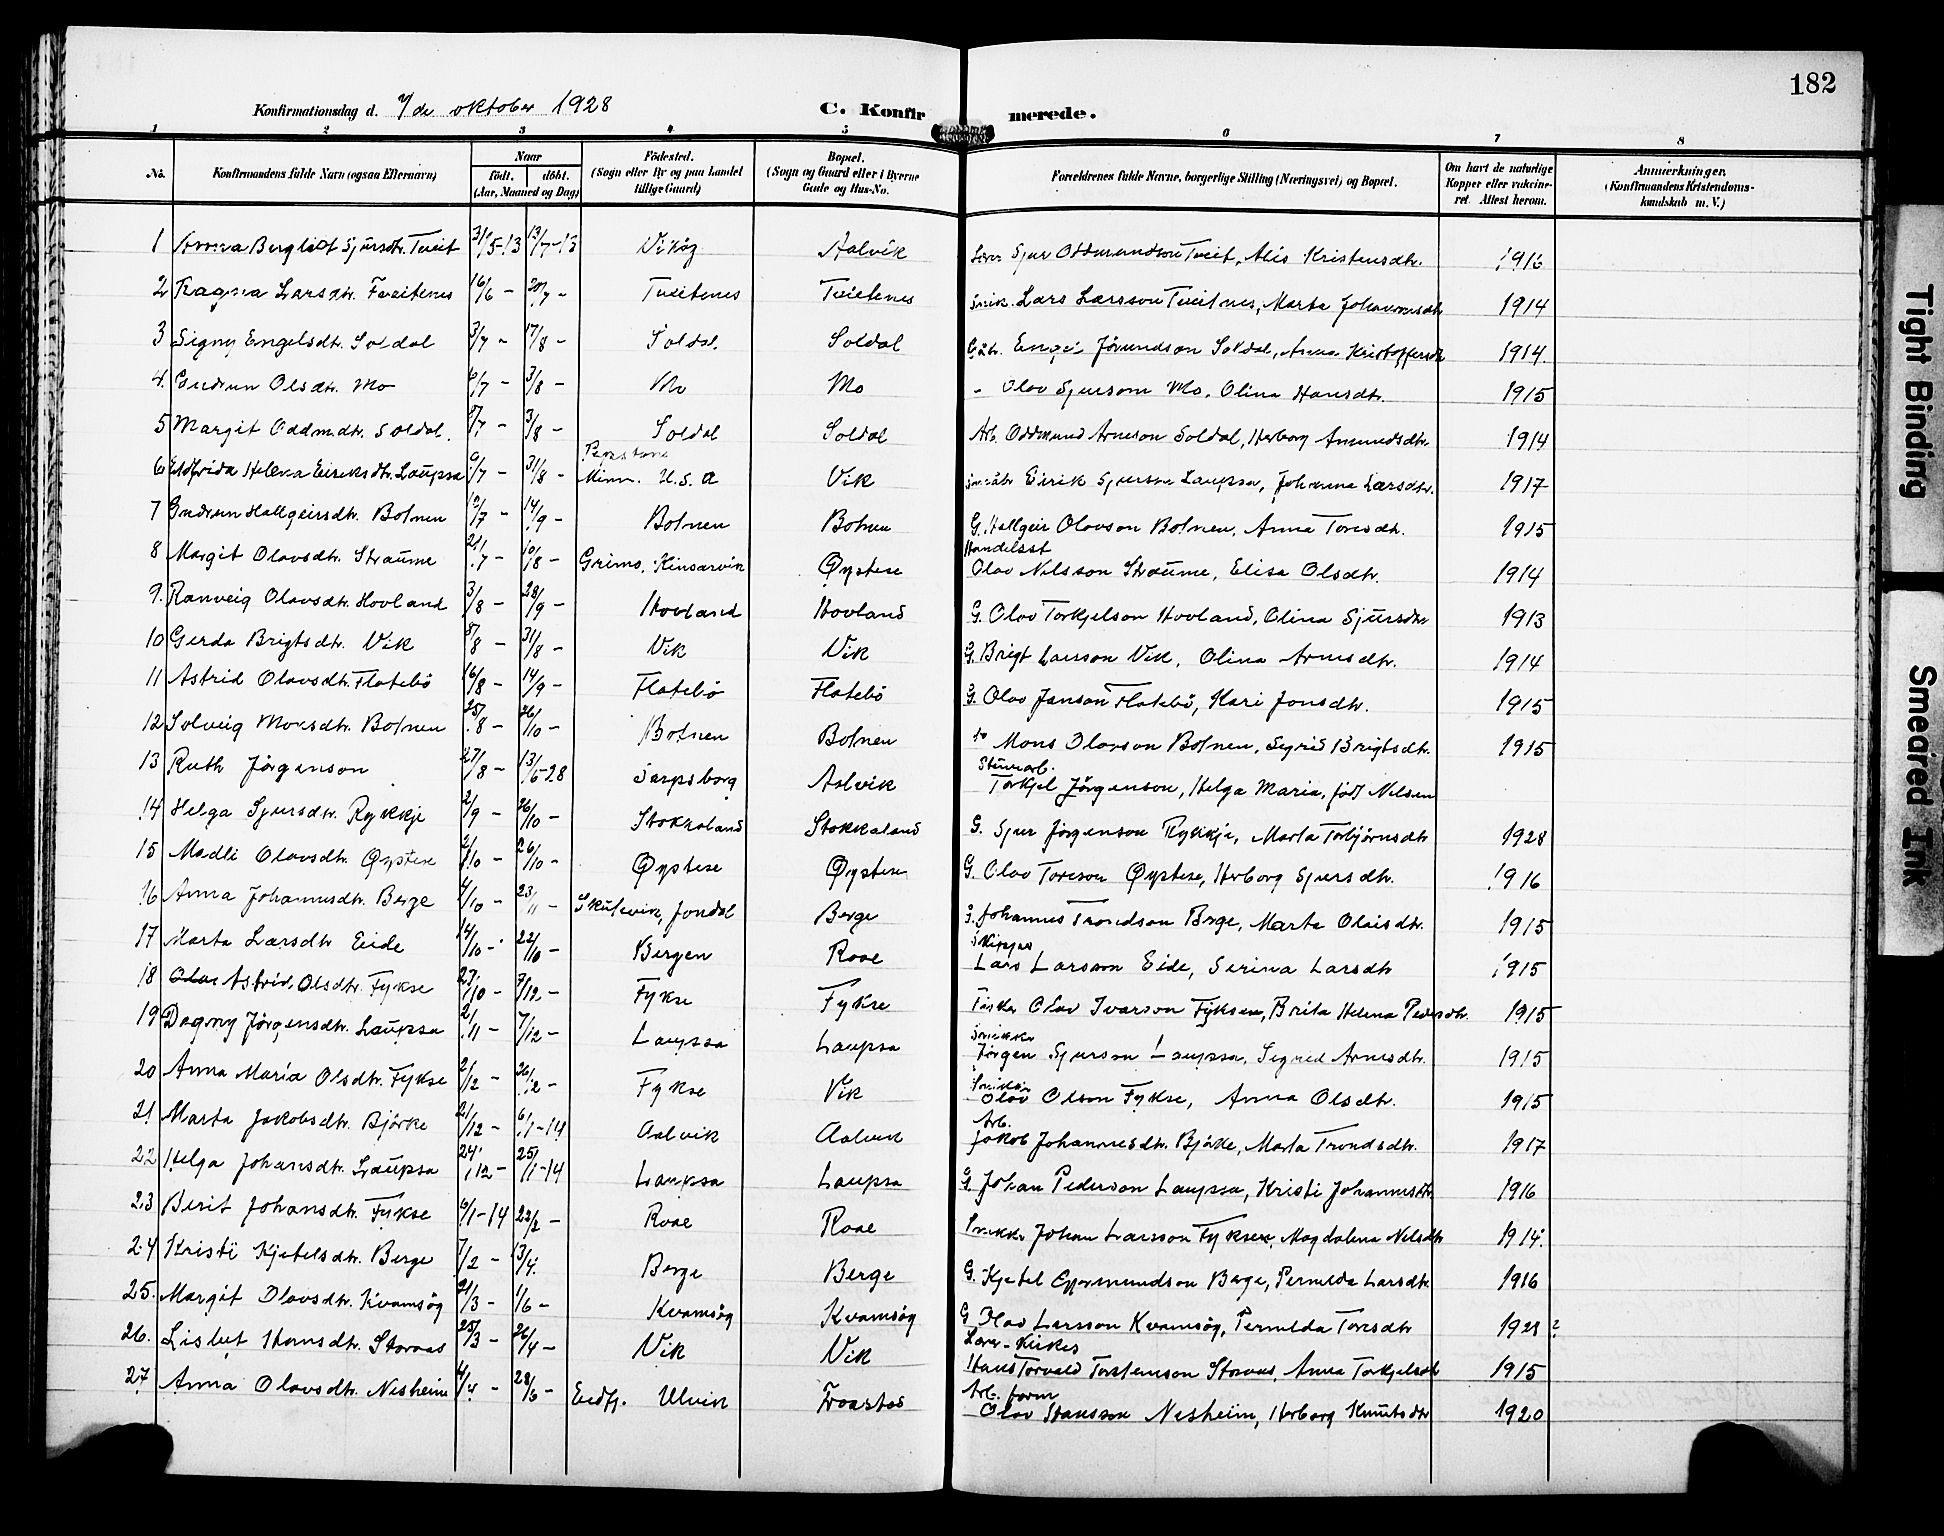 182
Konfirmationsdag d. 7/de oktober 1928 C. Konfirmerede.
1 2 3 4 5 6 7 8
No. Konfirmandens fulde Navn (ogsaa Efternavn) Naar födt. döbt. (Aar, Maaned og Dag) Födested. (Sogn eller By og paa Landet tillige Gaard) Bopæl. (Sogn og Gaard eller i Byerne Gade og Hus-No. Forældrenes fulde Navne, borgerlige Stilling (Næringsvei) og Bopæl. Om havt de naturlige Kopper eller vakcineret. Attest herom. Anmærkninger. (Konfirmandens Kristendomskundskab m. V.)
1 Bergliot Sjursdtr. Tveit 31/5-13 13/7-13 Vikøy Aalvik Sjur Oddmundson Tveit, Alis Kristensdtr. 1916
2 Ragna Larsdtr. Tveitenes 16/6 - 20/7 - Tveitenes Tveitenes Lars Larsson Tveitnes, Marta Johannesdtr 1914
3 Signy Engelsdtr. Soldal 3/7 - 17/8 - Soldal Soldal Gbr. Engel Jörundson Soldal, Anna Kristoffersdtr 1914.
4. Gudrun Olsdtr. Mo 6/7 - 3/8 - Mo Mo - Olav Sjurson Mo, Olina Hansdtr. 1915
5 Margit Oddm.dtr. Soldal. 3/8 - Soldal Soldal Arb. Oddmund Arneson Soldal, Herborg Amundsdtr 1914
6 Helena Eiriksdtr. Laupsa 9/7 - 31/8 - Minn. U.S.A Vik Eirik Sjurson Laupsa, Johanna Larsdtr. 1917
7 Gudrun Hallgeirsdtr. Botnen 14/9 - Botnen Botnen G. Hallgeir Olavson Botnen, Anna Toresdtr. 1915
8 Margit Olavsdtr. Straume 21/7 - 10/8 - Grimo, Kinsarvik Øystese Handelsst Olav Nilsson Straume, Elisa Olsdtr. 1914
9. Ranveig Olavsdtr. Hovland 3/8 - 28/9 - Hovland Hovland G. Olav Torkjelson Hovland, Olina Sjursdtr 1913
10 Gerda Brigtsdtr. Vik 5/8 - 31/8 - Vik Vik G. Brigt Larsson Vik, Olina Arnesdtr. 1914
11 Astrid Olavsdtr. Flatebö 16/8 - 14/9 - Flatebö Flatebö G. Olav Janson Flatebö, Kari Jonsdtr. 1915
12 Solveig Monsdtr. Botnen 25/8 - 26/10 - Botnen Botnen Mons Olavson Botnen, Sigrid Brigtsdtr. 1915
13 Ruth Jörgenson 27/8 - 13/5-28 Sarpsborg Aalvik Torkjel Jörgenson, Helga Maria, född Nilsen
14 Helga Sjursdtr. Rykkje 2/9 - 26/10 - Stokkaland Stokkaland G. Sjur Jörgenson Rykkje, Marta Torbjörnsdtr 1928
15 Madli Olavsdtr. Øystese 2/10 - 26/10 - Øystese Øystese G. Olav Toreson Øystese, Herborg Sjursdtr. 1916
16 Anna Johannesdtr. Berge 4/10 - 23/11 - Skutevik, Jondal Berge G. Johannes Trondson Berge, Marta Olaisdtr. 1915
17 Marta Larsdtr Eide 14/10 - 22/10 - Bergen Roae Skipper Lars Larsson Eide, Serina Larsdtr 1915
18 Olav Astrid Olsdtr. Fykse 27/10 - 7/12 - Fykse Fykse Fisker Olav Ivarson Fyksen, Brita Helena Pedersdtr. 1915
19 Dagny Jörgensdtr. Laupsa 2/11 - 7/12 - Laupsa Laupsa Snikkr Jörgen Sjurson Laupsa, Sigrid Arnesdtr. 1915
20 Anna Maria Olsdtr. Fykse 2/12 - 26/12 - Fykse Vik Olav Olson Fykse, Anna Olsdtr. 1915
21 Marta Jakobsdtr. Björke 21/12 - 6/1-14 Aalvik Aalvik Arb. Jakob Johannesdtr. Björke, Marta Trondsdtr. 1917
22 Helga Johansdtr. Laupsa 24/12 - 25/1-14 Laupsa Laupsa G. Johan Pederson Laupsa, Kristi Johannesdtr 1916
23 Berit Johansdtr. Fykse 6/1-14 22/2 - Roae Roae Snikkr Johan Larsson Fyksen, Magdalena Nilsdtr 1914.
24 Kristi Kjetelsdtr. Berge 7/2 - 13/4. Berge Berge G. Kjetel Gjermundson Berge, Pernilda Larsdtr. 1916
25. Margit Olavsdtr. Kvamsøy 21/3 - 1/6 - Kvamsøy Kvamsøy G. Olav Larsson Kvamsøy, Pernilda Toresdtr 1928 ?
26. Lisbet Hansdtr. Storaas 25/3 - 26/4 - Vik Vik Lærer - Kirkes Hans Torvald Torstenson Storaas, Anna Torkjelsdtr 1915
27 Anna Olavsdtr. Nesheim 4/4 - 28/6 - Eidfj. Ulvik Froastad Arb. form Olav Hansson Nesheim, Herborg Knutsdtr 1920
Tight Binding
Smeared Ink